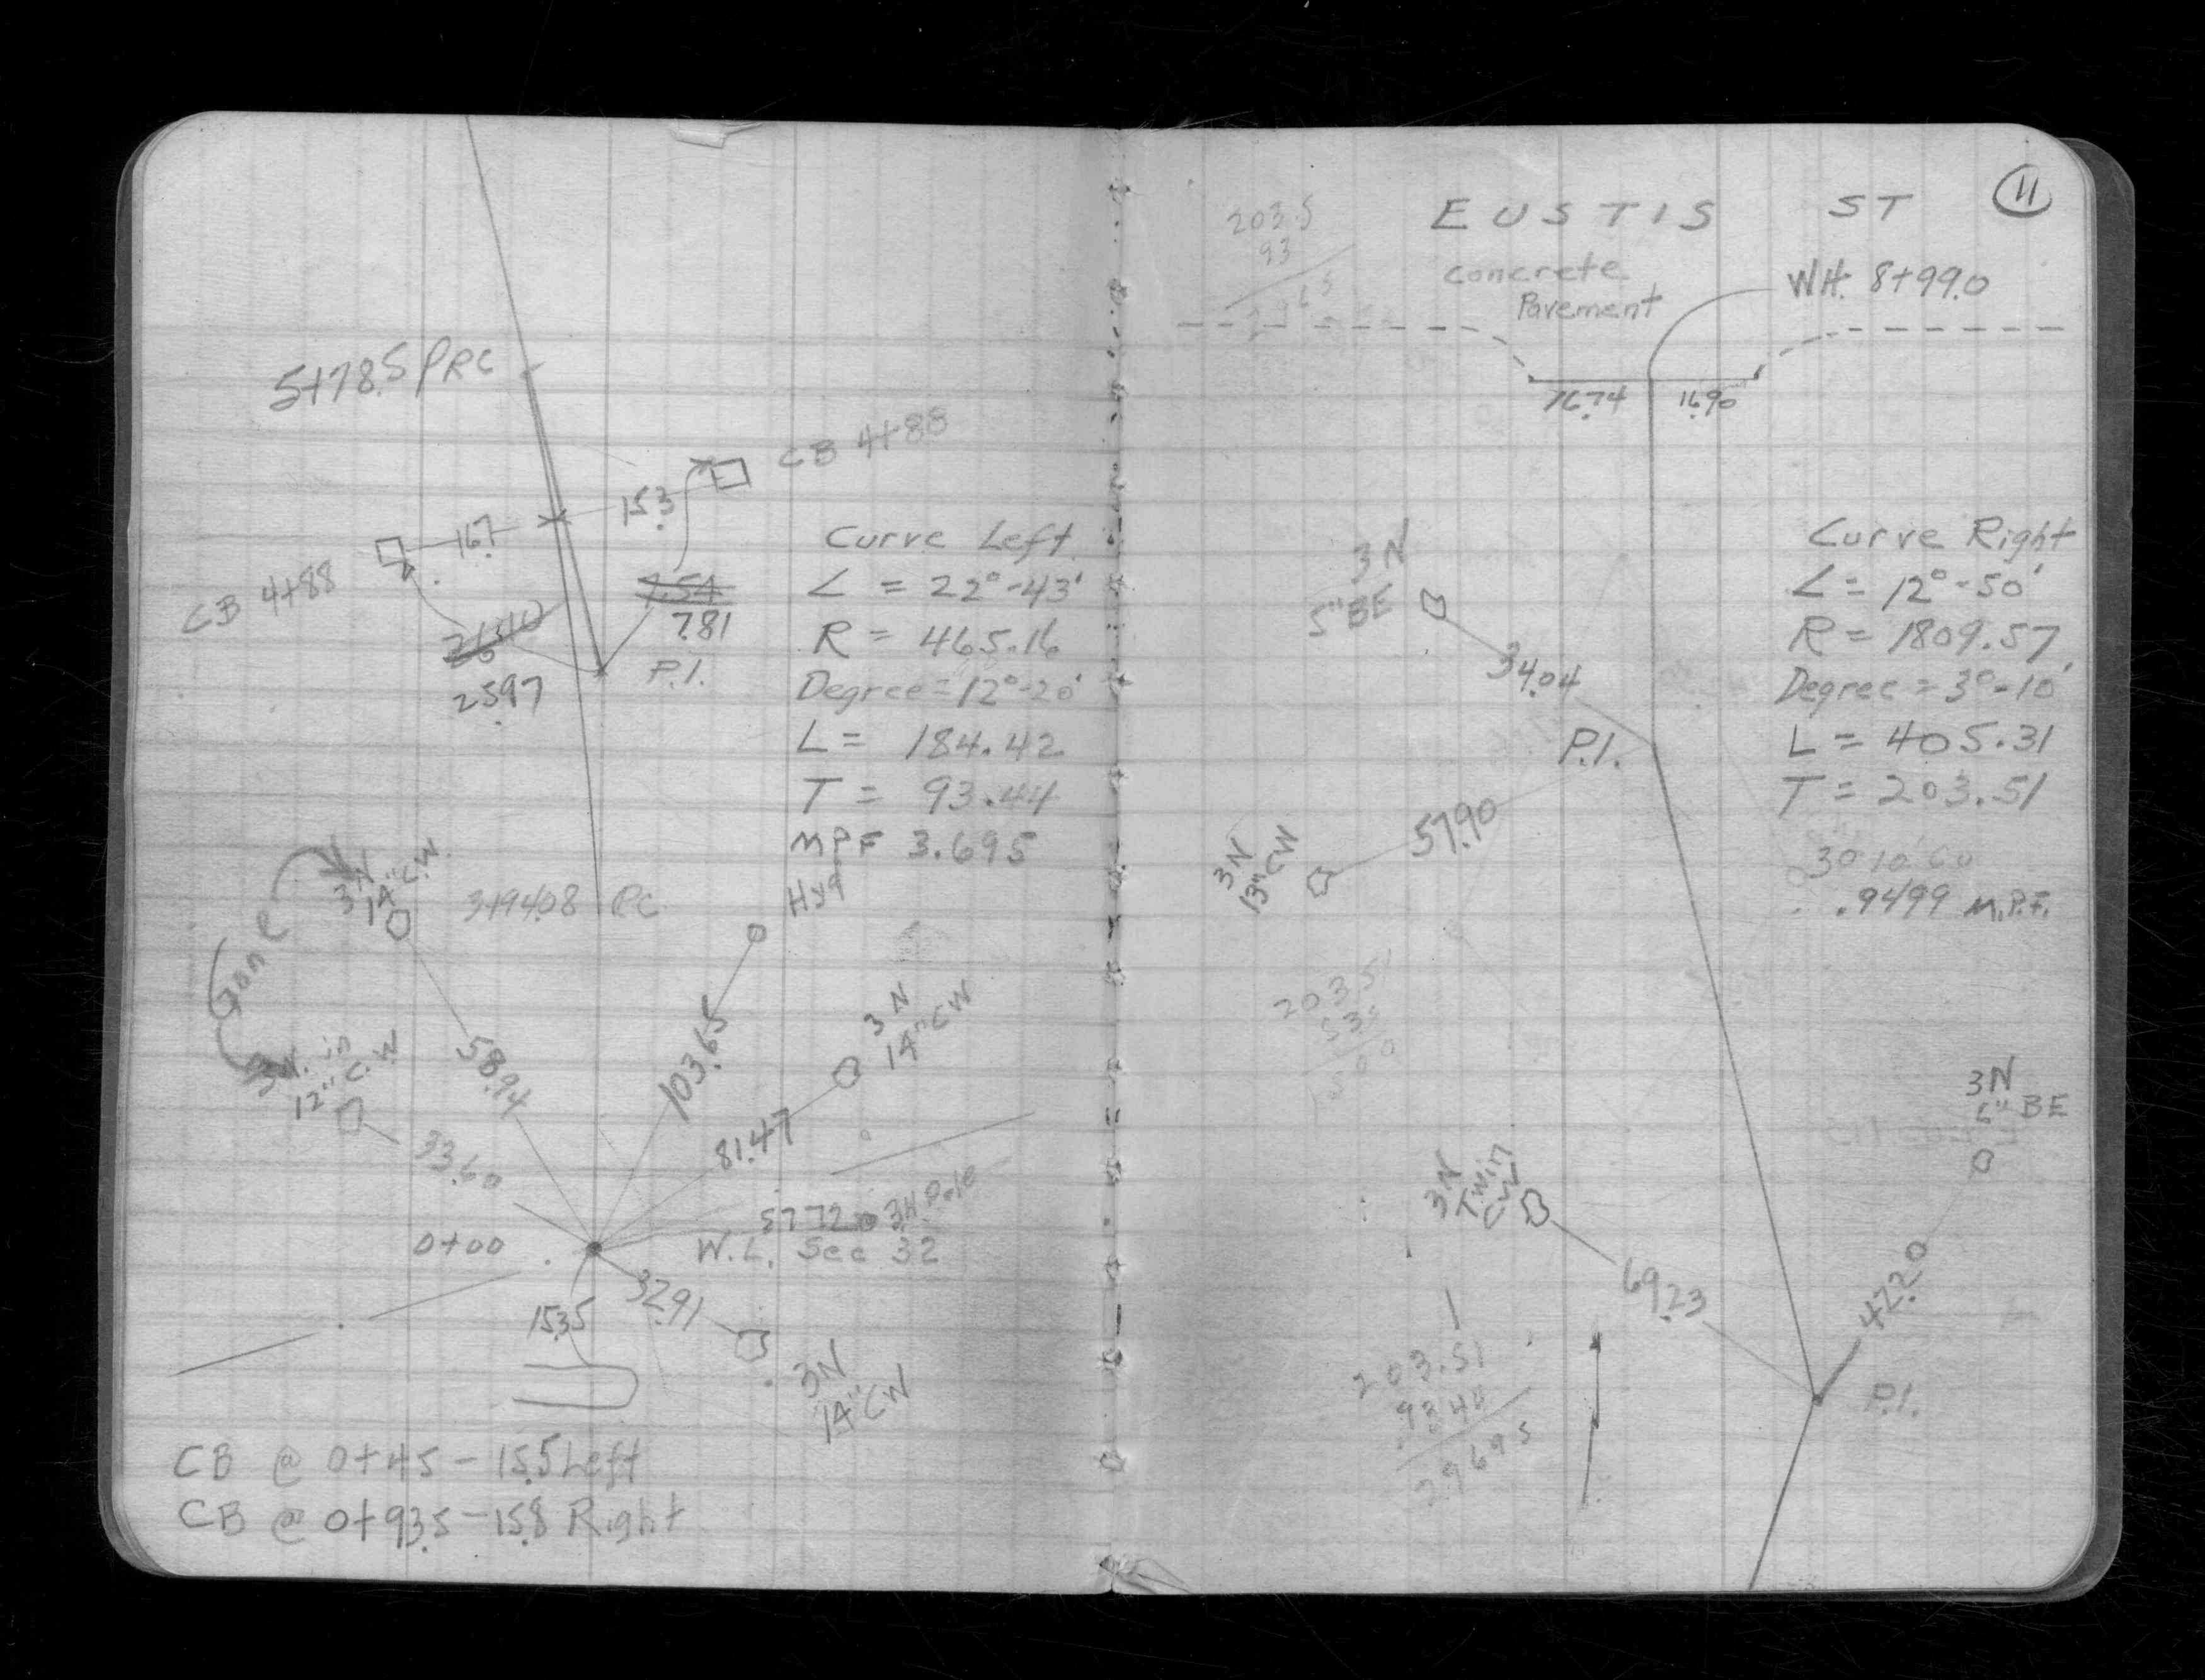 5+78.5 PRC
CB 4+88
15.3
16.7
CB 4+88
7.54
7.81
26.10
25.97
P.I.
Curve Left
∠ = 22°-43'
R = 465.16
Degree = 12°-20'
L = 184.42
T = 93.44
MPF 3.695
3+94.08 PC
Hyd
3N
14" C.W.
Gone
3N. in
12" C.W
58.94
103.65
3N
14" CW
33.60
81.47
57.72
3N Pole
0+00
W.L. Sec 32
15.35
32.91
3N
14" CW
CB @ 0+45 - 15.5 Left
CB @ 0+93.5 - 15.8 Right
11
EUSTIS ST
203.5
93
Concrete
Pavement
WH. 8+99.0
16.74
16.90
3N
5" BE
34.04
P.I.
57.90
3N
13" CW
Curve Right
∠ = 12°-50'
R = 1809.57
Degree = 3°-10'
L = 405.31
T = 203.51
.9499 M.P.F.
203.51
3N
6" BE
3N
Twin
CW
69.23
42.20
P.I.
203.51
93.44
296.95